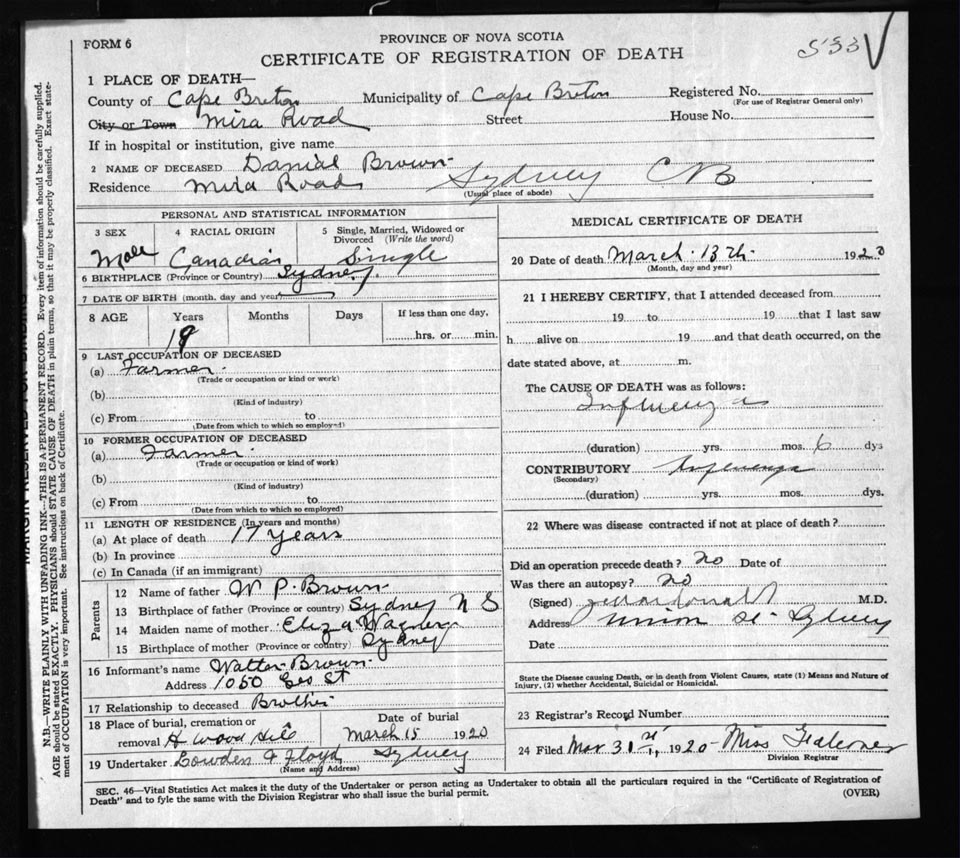 FORM 6
PROVINCE OF NOVA SCOTIA
CERTIFICATE OF REGISTRATION OF DEATH
533
1 PLACE OF DEATH—
County of Cape Breton Municipality of Cape Breton Registered No.
(For use of Registrar General only)
City or Town Mira Road Street House No.
If in hospital or institution, give name
2 NAME OF DECEASED Danial Brown
Residence Mira Road Sydney CB
(Usual place of abode)
PERSONAL AND STATISTICAL INFORMATION
3 SEX 4 RACIAL ORIGIN 5 Single, Married, Widowed or Divorced (Write the word)
Male Canadian Single
6 BIRTHPLACE (Province or Country) Sydney
7 DATE OF BIRTH (month, day and year)
8 AGE Years Months Days If less than one day,
hrs. or min.
9 LAST OCCUPATION OF DECEASED
(a) Farmer
(Trade or occupation or kind or work)
(b)
(Kind of industry)
(c) From to
(Date from which to which so employed)
10 FORMER OCCUPATION OF DECEASED
(a) Farmer
(Trade or occupation or kind of work)
(b)
(Kind of industry)
(c) From to
(Date from which to which so employed)
11 LENGTH OF RESIDENCE (In years and months)
(a) At place of death 17 years
(b) In province
(c) In Canada (if an immigrant)
Parents
12 Name of father W P. Brown
13 Birthplace of father (Province or country) Sydney N S
14 Maiden name of mother Eliza Wagner
15 Birthplace of mother (Province or country) Sydney
16 Informant's name Walter Brown
Address 1050 Geo St
17 Relationship to deceased Brother
18 Place of burial, cremation or Date of burial
removal H wood Hill March 15 1920
19 Undertaker Lowden & Floyd Sydney
(Name and Address)
MEDICAL CERTIFICATE OF DEATH
20 Date of death March 13th 1920
(Month, day and year)
21 I HEREBY CERTIFY, that I attended deceased from
19 to 19 that I last saw
h alive on 19 and that death occurred, on the
date stated above, at m.
The CAUSE OF DEATH was as follows:
Influenza
(duration) yrs. mos. 6 dys
CONTRIBUTORY Influenza
(Secondary)
(duration) yrs. mos. dys.
22 Where was disease contracted if not at place of death?
Did an operation precede death? no Date of
Was there an autopsy? no
(Signed) M.D.
Address Union St Sydney
Date
State the Disease causing Death, or in death from Violent Causes, state (1) Means and Nature of
Injury, (2) whether Accidental, Suicidal or Homicidal.
23 Registrar's Record Number
24 Filed Mar 31st, 1920 Miss Falconer
Division Registrar
SEC. 46—Vital Statistics Act makes it the duty of the Undertaker or person acting as Undertaker to obtain all the particulars required in the "Certificate of Registration of
Death" and to fyle the same with the Division Registrar who shall issue the burial permit. (OVER)
MARGIN RESERVED FOR BINDING
N.B.—WRITE PLAINLY WITH UNFADING INK—THIS IS A PERMANENT RECORD. Every item of information should be carefully supplied.
AGE should be stated EXACTLY. PHYSICIANS should STATE CAUSE OF DEATH in plain terms, so that it may be properly classified. Exact state-
ment of OCCUPATION is very important. See instructions on back of Certificate.